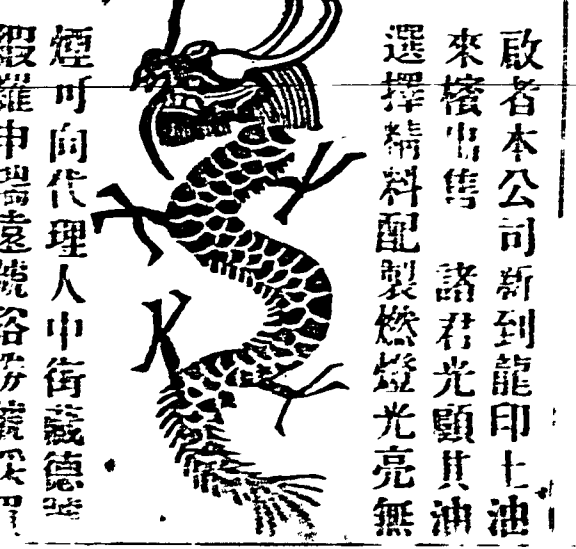 啟者本公司新到龍印土油
來檳出售　諸君光顧其油
選擇精料配製燃燈光亮無
煙可向代理人中街藏德
叚羅申瑞遠號裕勝號采買